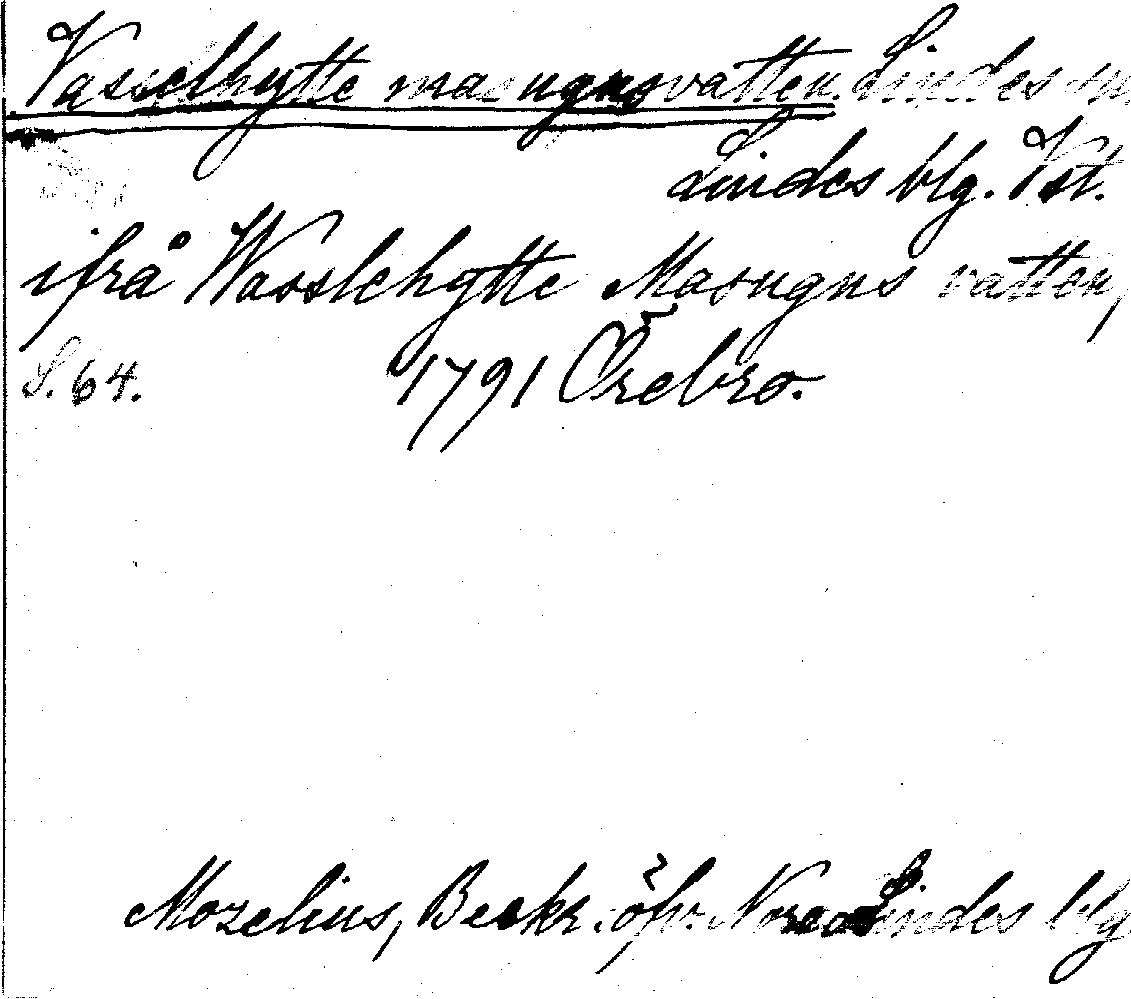 Vasselhytte masugnsvatten. Lindes sn.
Lindes blg. Vst.
ifrå Wasslehytte Masugns vatten,
S. 64. 1791 Örebro.
Mozelius, Beskr. öfv. Nora o Lindes blg